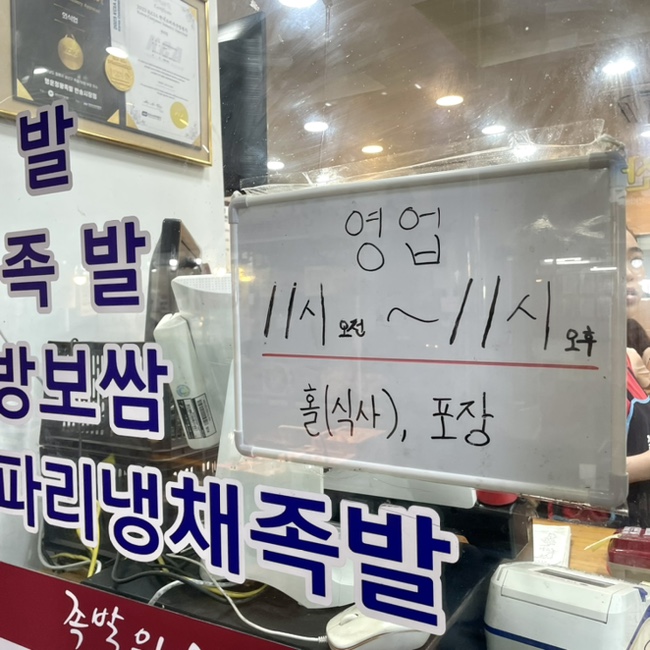 발
족발
방보쌈
파리냉채족발
영업
11시 오전 ~ 11시 오후
홀(식사), 포장
족발의